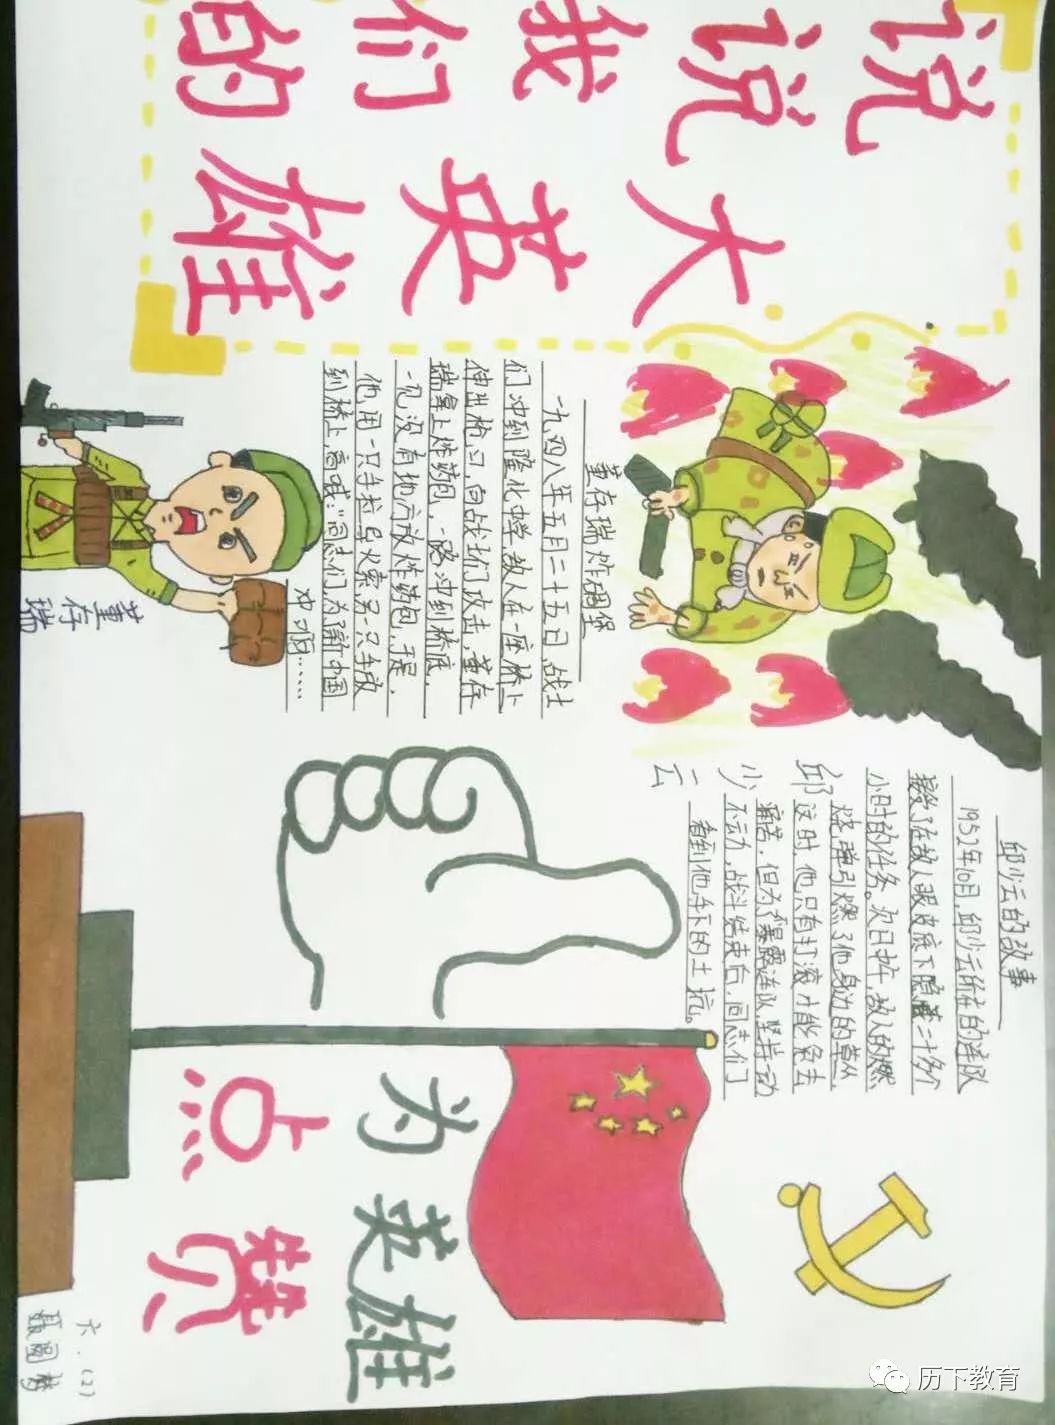 说说我们的
大英雄
董存瑞炸碉堡
一九四八年五月二十五日,战士
们冲到隆化中学,敌人在一座桥上
伸出枪口,向战士们攻击,董存
瑞拿上炸药包,一路冲到桥底,
一见没有地方放炸药包,于是,
他用一只手拉导火索另一只手放
到桥上,高喊:“同志们,为了新中国
冲啊……
董存瑞
邱少云的故事
1952年10月,邱少云所在的连队
接受了在敌人眼皮底下隐蔽二十多个
小时的任务。次日中午,敌人的燃
烧弹引燃了他身边的草丛
这时,他只有打滚才能免去
痛苦,但为了暴露连队,坚持一动
不动,战斗结束后,同志们
看到他手下的土坑。
邱少云
为英雄
点赞
六.(2)
聂圆梦
历下教育